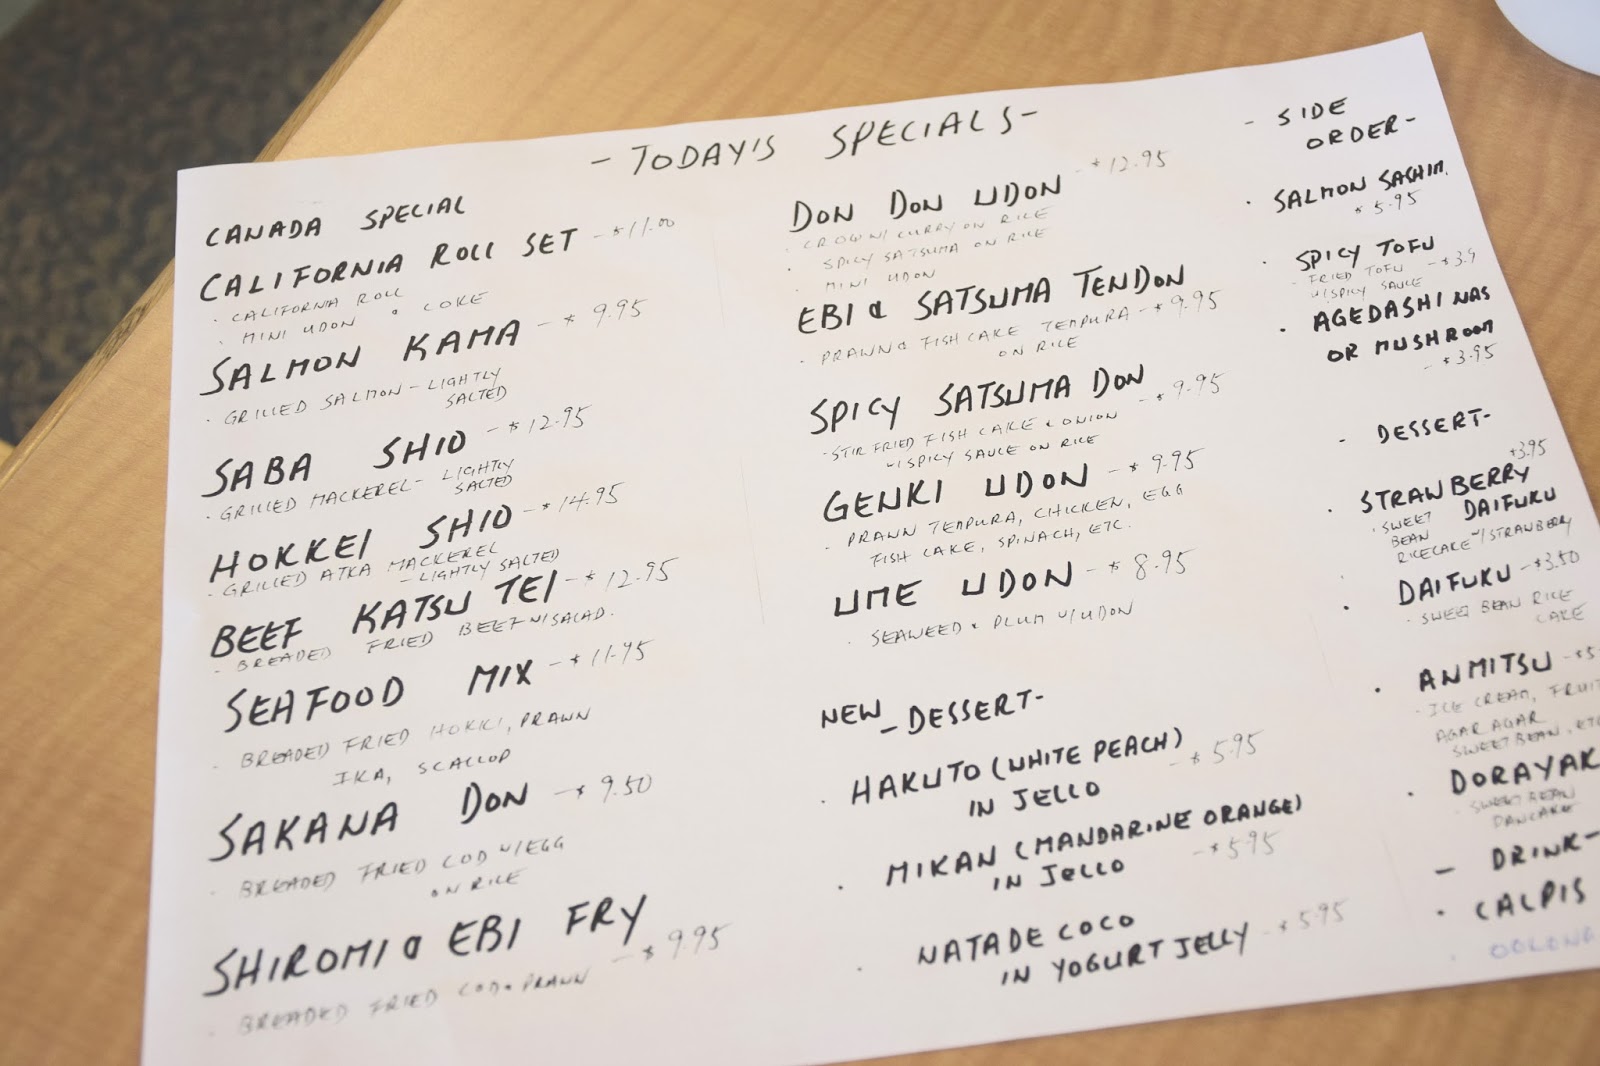 - TODAY'S SPECIALS -
CANADA SPECIAL
CALIFORNIA ROLL SET - $11.00
· CALIFORNIA ROLL
· MINI UDON & COKE
SALMON KAMA - $ 9.95
· GRILLED SALMON - LIGHTLY
SALTED
SABA SHIO - $12.95
· GRILLED MACKEREL - LIGHTLY
SALTED
HOKKEI SHIO - $14.95
· GRILLED ATKA MACKEREL
- LIGHTLY SALTED
BEEF KATSU TEI - $12.95
· BREADED FRIED BEEF W/SALAD.
SEAFOOD MIX - $11.95
· BREADED FRIED HOKKI, PRAWN
IKA, SCALLOP
SAKANA DON - $9.50
· BREADED FRIED COD W/EGG
ON RICE
SHIROMI & EBI FRY
- $9.95
· BREADED FRIED COD & PRAWN
DON DON UDON - $12.95
· CURRY ON RICE
· SPICY SATSUMA ON RICE
· MINI UDON
EBI & SATSUMA TENDON
- $9.95
· PRAWN & FISH CAKE TEMPURA
ON RICE
SPICY SATSUMA DON
- $9.95
· STIR FRIED FISH CAKE & ONION
W/SPICY SAUCE ON RICE
GENKI UDON - $9.95
· PRAWN TEMPURA, CHICKEN, EGG
FISH CAKE, SPINACH, ETC.
UME UDON - $8.95
· SEAWEED & PLUM W/UDON
NEW - DESSERT -
· HAKUTO (WHITE PEACH)
IN JELLO - $5.95
· MIKAN (MANDARINE ORANGE)
IN JELLO - $5.95
· NATADE COCO
IN YOGURT JELLY - $5.95
- SIDE
ORDER -
· SALMON SASHIM.
$5.95
· SPICY TOFU
- FRIED TOFU - $3.9
W/SPICY SAUCE
· AGEDASHI NAS
OR MUSHROOM
- $3.95
- DESSERT -
$3.95
· STRAWBERRY
DAIFUKU
· SWEET
BEAN
RICECAKE W/STRAWBERRY
· DAIFUKU - $3.50
· SWEET BEAN RICE
CAKE
· ANMITSU - $5
· ICE CREAM, FRUIT
AGAR AGAR
SWEET BEAN, ETC
· DORAYAK
· SWEET BEAN
PANCAKE
- DRINK -
· CALPIS